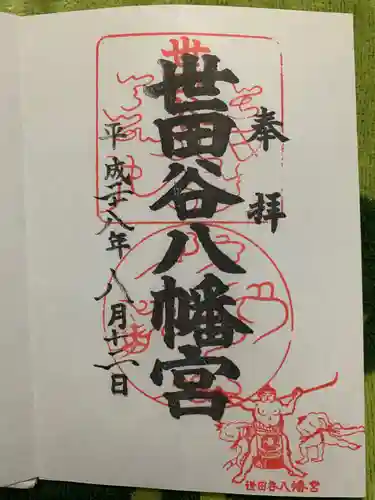 奉拝
世
世田谷八幡宮
平成二十八年八月十二日
世田谷八幡宮